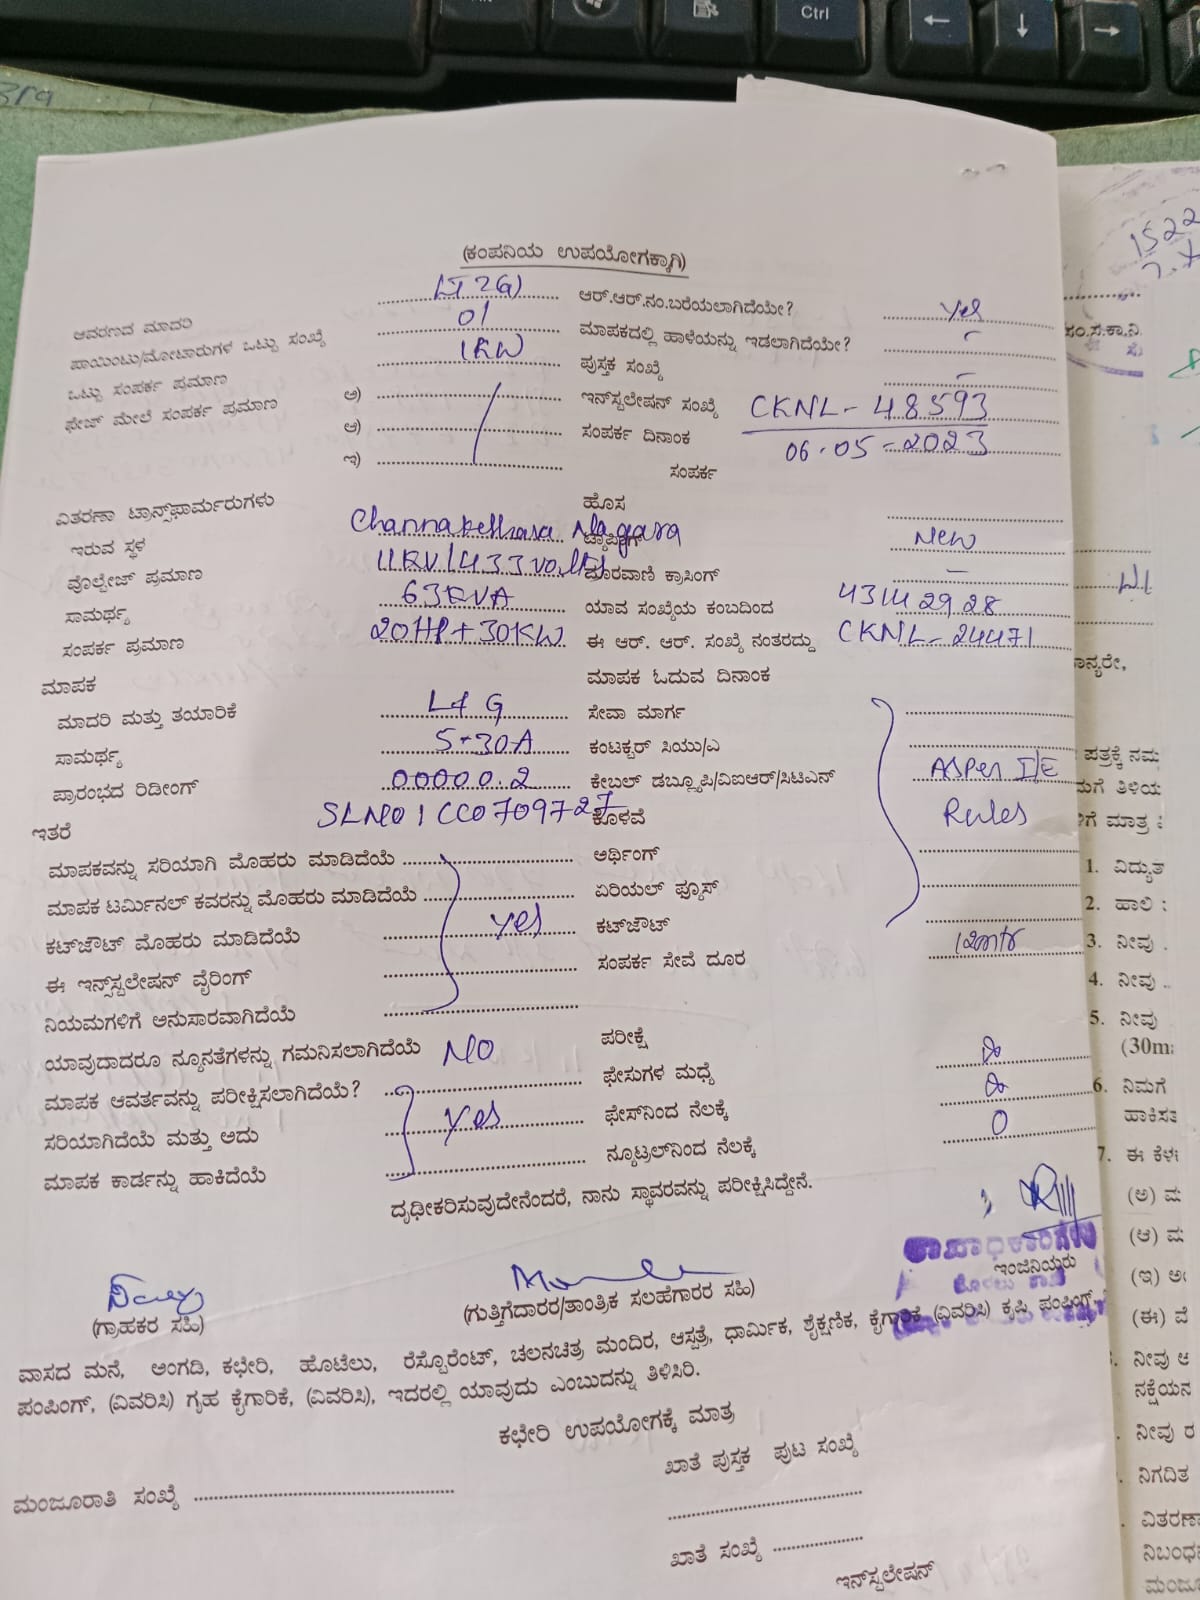 (ಕಂಪನಿಯ ಉಪಯೋಗಕ್ಕಾಗಿ)
ಆವರಣದ ಮಾದರಿ LT2(a) ಆರ್.ಆರ್.ನಂ.ಬರೆಯಲಾಗಿದೆಯೇ? yes
ಪಾಯಿಂಟು/ಮೋಟಾರುಗಳ ಒಟ್ಟು ಸಂಖ್ಯೆ 01 ಮಾಪಕದಲ್ಲಿ ಹಾಳೆಯನ್ನು ಇಡಲಾಗಿದೆಯೇ? -
ಒಟ್ಟು ಸಂಪರ್ಕ ಪ್ರಮಾಣ 1KW ಪುಸ್ತಕ ಸಂಖ್ಯೆ -
ಫೇಜ್ ಮೇಲೆ ಸಂಪರ್ಕ ಪ್ರಮಾಣ ಅ) ಇನ್‌ಸ್ಟಲೇಷನ್ ಸಂಖ್ಯೆ CKNL-48593
ಆ) ಸಂಪರ್ಕ ದಿನಾಂಕ 06.05-2023
ಇ) ಸಂಪರ್ಕ
ವಿತರಣಾ ಟ್ರಾನ್ಸ್‌ಫಾರ್ಮರುಗಳು ಹೊಸ
ಇರುವ ಸ್ಥಳ Nagara New
ವೊಲ್ಟೇಜ್ ಪ್ರಮಾಣ 11KV/433volts ಮಾರವಾಣಿ ಕ್ರಾಸಿಂಗ್ -
ಸಾಮರ್ಥ್ಯ 63KVA ಯಾವ ಸಂಖ್ಯೆಯ ಕಂಬದಿಂದ
ಸಂಪರ್ಕ ಪ್ರಮಾಣ 20HP+30KW ಈ ಆರ್. ಆರ್. ಸಂಖ್ಯೆ ನಂತರದ್ದು CKNL-24471
ಮಾಪಕ ಮಾಪಕ ಓದುವ ದಿನಾಂಕ
ಮಾದರಿ ಮತ್ತು ತಯಾರಿಕೆ L&G ಸೇವಾ ಮಾರ್ಗ
ಸಾಮರ್ಥ್ಯ 5-30A ಕಂಟಕ್ಟರ್ ಸಿಯು/ಎ
ಪ್ರಾರಂಭದ ರಿಡೀಂಗ್ 00000.2 ಕೇಬಲ್ ಡಬ್ಲ್ಯೂಪಿ/ವಿಐಆರ್/ಸಿಟಿಎಸ್ Asper I/E
ಇತರೆ ಕೊಳವೆ Rules
ಮಾಪಕವನ್ನು ಸರಿಯಾಗಿ ಮೊಹರು ಮಾಡಿದೆಯೆ ಅರ್ಥಿಂಗ್
ಮಾಪಕ ಟರ್ಮಿನಲ್ ಕವರನ್ನು ಮೊಹರು ಮಾಡಿದೆಯೆ ಏರಿಯಲ್ ಪ್ಯೂಸ್
ಕಟ್‌ಔಟ್ ಮೊಹರು ಮಾಡಿದೆಯೆ yes ಕಟ್‌ಔಟ್
ಈ ಇನ್ಸ್‌ಸ್ಟಲೇಷನ್ ವೈರಿಂಗ್ ಸಂಪರ್ಕ ಸೇವೆ ದೂರ 12mtr
ನಿಯಮಗಳಿಗೆ ಅನುಸಾರವಾಗಿದೆಯೆ
ಯಾವುದಾದರೂ ನ್ಯೂನತೆಗಳನ್ನು ಗಮನಿಸಲಾಗಿದೆಯೆ NO ಪರೀಕ್ಷೆ
ಮಾಪಕ ಆವರ್ತವನ್ನು ಪರೀಕ್ಷಿಸಲಾಗಿದೆಯೆ? ಫೇಸುಗಳ ಮಧ್ಯೆ ∞
ಸರಿಯಾಗಿದೆಯೆ ಮತ್ತು ಅದು yes ಫೇಸ್‌ನಿಂದ ನೆಲಕ್ಕೆ ∞
ಮಾಪಕ ಕಾರ್ಡನ್ನು ಹಾಕಿದೆಯೆ ನ್ಯೂಟ್ರಲ್‌ನಿಂದ ನೆಲಕ್ಕೆ 0
ದೃಢೀಕರಿಸುವುದೇನೆಂದರೆ, ನಾನು ಸ್ಥಾವರವನ್ನು ಪರೀಕ್ಷಿಸಿದ್ದೇನೆ.
ಇಂಜಿನಿಯರು
(ಗ್ರಾಹಕರ ಸಹಿ) (ಗುತ್ತಿಗೆದಾರರ/ತಾಂತ್ರಿಕ ಸಲಹೆಗಾರರ ಸಹಿ)
ವಾಸದ ಮನೆ, ಅಂಗಡಿ, ಕಛೇರಿ, ಹೊಟೆಲು, ರೆಸ್ಟೊರೆಂಟ್, ಚಲನಚಿತ್ರ ಮಂದಿರ, ಆಸ್ಪತ್ರೆ, ಧಾರ್ಮಿಕ, ಶೈಕ್ಷಣಿಕ, ಕೈಗಾರಿಕೆ (ವಿವರಿಸಿ) ಕೃಷಿ ಪಂಪಿಂಗ್,
ಪಂಪಿಂಗ್, (ವಿವರಿಸಿ) ಗೃಹ ಕೈಗಾರಿಕೆ, (ವಿವರಿಸಿ), ಇದರಲ್ಲಿ ಯಾವುದು ಎಂಬುದನ್ನು ತಿಳಿಸಿರಿ.
ಕಛೇರಿ ಉಪಯೋಗಕ್ಕೆ ಮಾತ್ರ
ಖಾತೆ ಪುಸ್ತಕ ಪುಟ ಸಂಖ್ಯೆ
ಮಂಜೂರಾತಿ ಸಂಖ್ಯೆ
ಖಾತೆ ಸಂಖ್ಯೆ
ಇನ್‌ಸ್ಟಲೇಷನ್
Ctrl
1. ವಿದ್ಯುತ
2. ಹಾಲಿ
3. ನೀವು
4. ನೀವು
5. ನೀವು
(30m
6. ನಿಮಗೆ
7. ಈ ಕೆಳ
(ಅ) ಮ
(ಆ) ಮ
(ಇ) ಅ
(ಈ) ವೆ